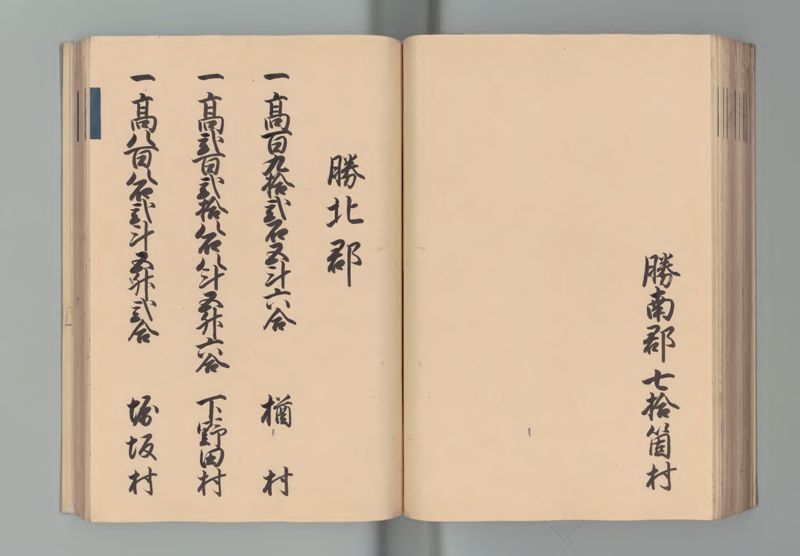 勝南郡七拾箇村
勝北郡
一高百九拾弐石五斗六合 楢村
一高弐百弐拾八石八斗五升六合 下野田村
一高八百八石弐斗五升弐合 堀坂村